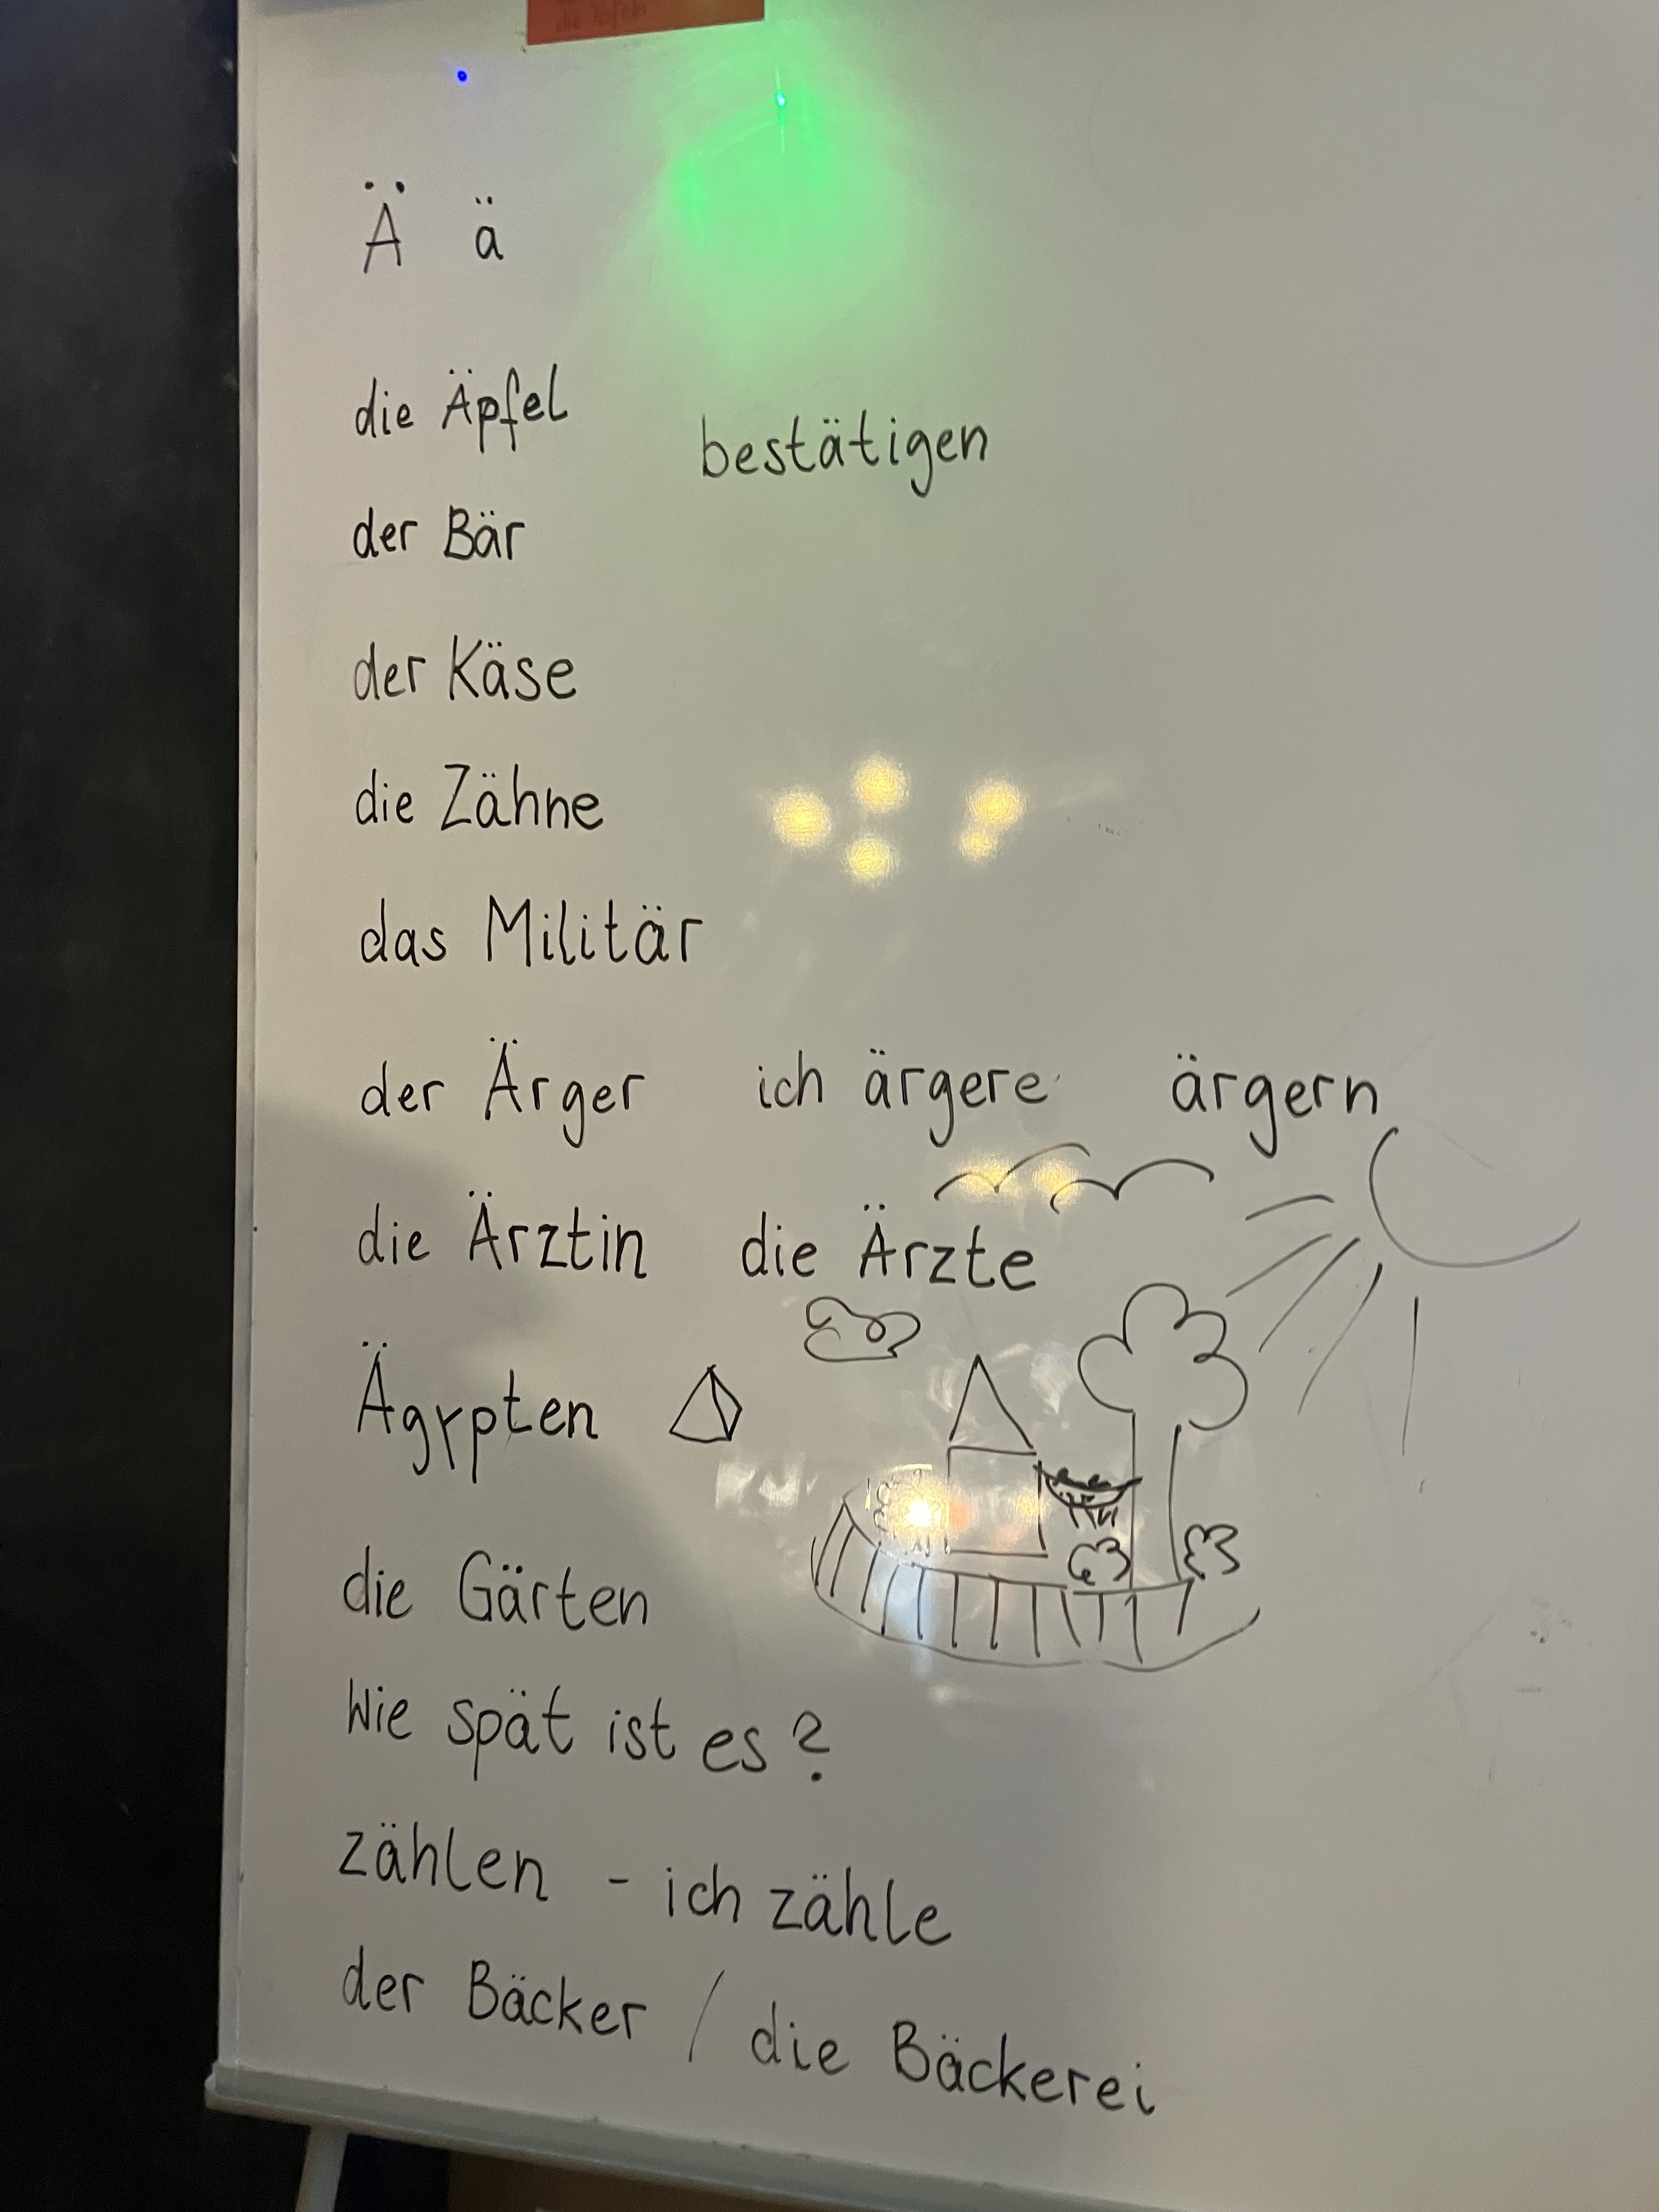 Ä ä
die Äpfel
bestätigen
der Bär
der Käse
die Zähne
das Militär
der Ärger ich ärgere ärgern
die Ärztin die Ärzte
Ägypten
die Gärten
Wie spät ist es?
zählen - ich zähle
der Bäcker / die Bäckerei